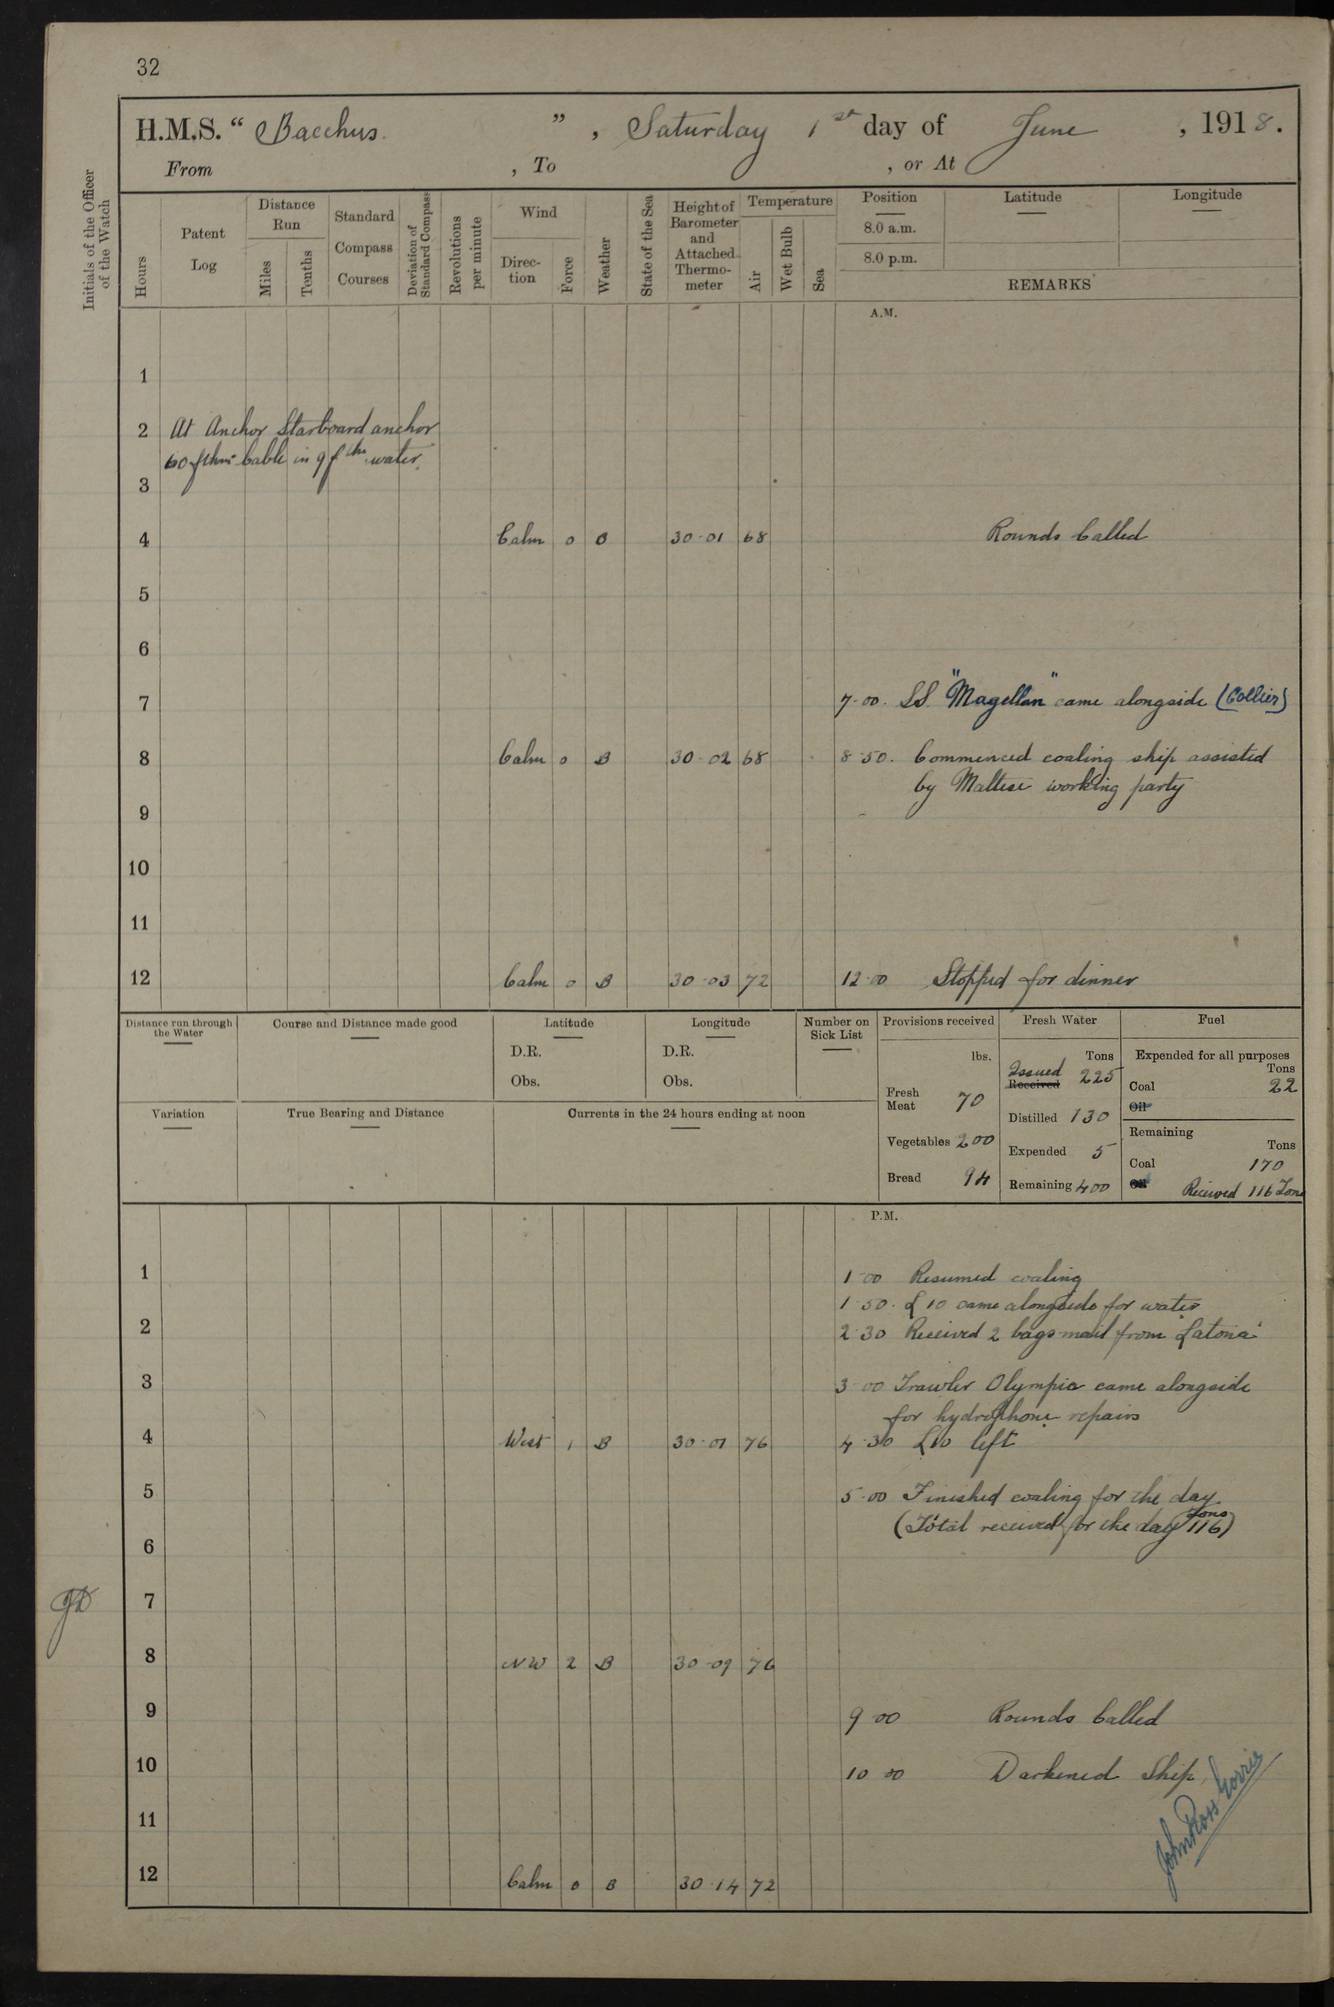 32
H.M.S. “ Bacchus ” , Saturday 1st day of June , 1918.
From , To , or At
Initials of the Officer
of the Watch
Hours
Patent
Log
Distance
Run
Miles
Tenths
Standard
Compass
Courses
Deviation of
Standard Compass
Revolutions
per minute
Wind
Direc-
tion
Force
Weather
State of the Sea
Height of
Barometer
and
Attached
Thermo-
meter
Temperature
Air
Wet Bulb
Sea
Position Latitude Longitude
8.0 a.m.
8.0 p.m.
REMARKS
A.M.
1
2 At Anchor Starboard anchor
60 fthms Cable in 9 fthm water.
3
4 Calm 0 O 30·01 68 Rounds Called
5
6
7 7·00. SS. "Magellan" came alongside (Collier)
8 Calm 0 B 30·02 68 8·50. Commenced coaling ship assisted
by Maltese working party
9
10
11
12 Calm 0 B 30·03 72 12·00 Stopped for dinner
Distance run through
the Water
Course and Distance made good
Latitude
D.R.
Obs.
Longitude
D.R.
Obs.
Number on
Sick List
Variation
True Bearing and Distance
Currents in the 24 hours ending at noon
Provisions received
lbs.
Fresh
Meat 70
Vegetables 200
Bread 94
Fresh Water
Tons
Issued
Received 225
Distilled 130
Expended 5
Remaining 400
Fuel
Expended for all purposes
Tons
Coal 22
Oil
Remaining
Tons
Coal 170
Oil Received 116 Tons
P.M.
1 1·00 Resumed coaling
1·50. L 10 came alongside for water
2 2·30 Received 2 bags mail from Latona
3 3·00 Trawler Olympia came alongside
for hydrophone repairs
4 West 1 B 30·07 76 4·30 L10 left
5 5·00 Finished coaling for the day
(Total received for the day 116 Tons)
6
7
8 NW 2 B 30·09 76
9 9·00 Rounds Called
10 10·00 Darkened Ship
11
John Ross
12 Calm 0 B 30·14 72